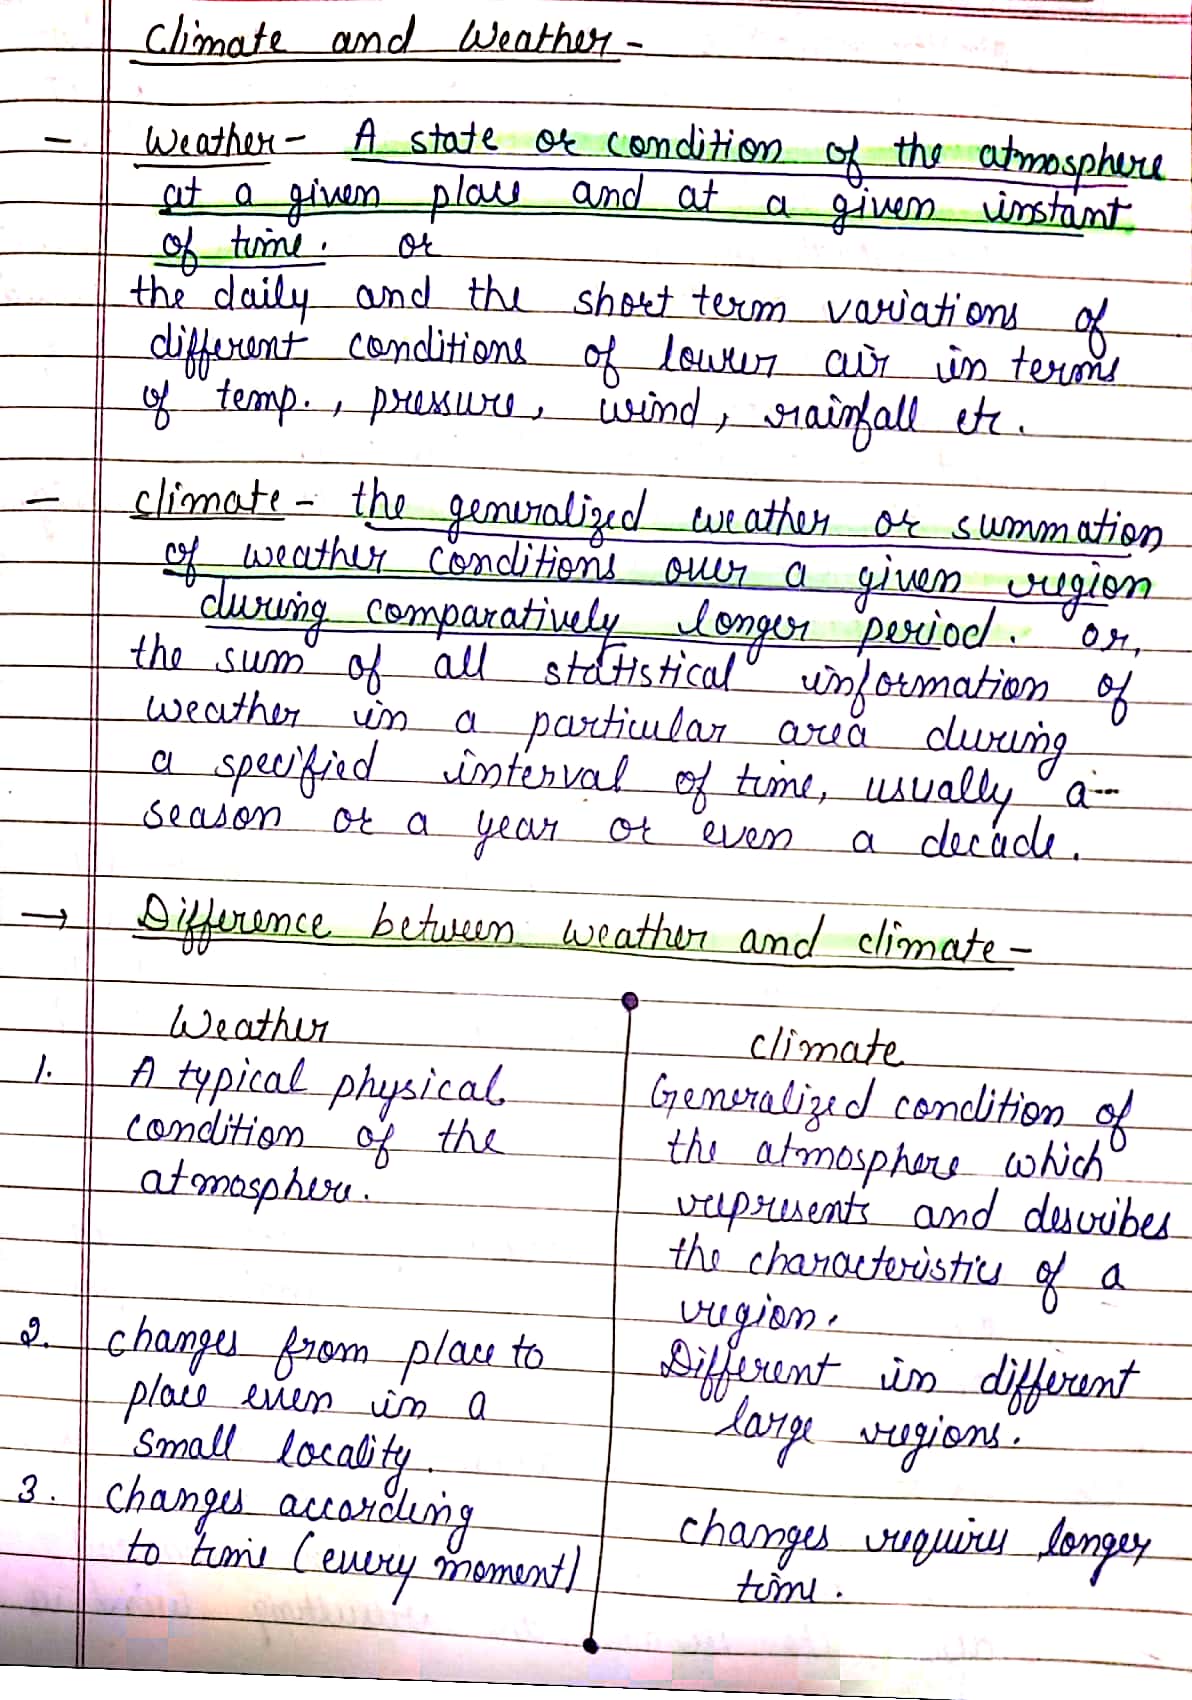 Climate and Weather -
- Weather - A state or condition of the atmosphere
at a given place and at a given instant
of time. or
the daily and the short term variations of
different conditions of lower air in terms
of temp., pressure, wind, rainfall etc.
- climate - the generalized weather or summation
of weather conditions over a given region
during comparatively longer period. or,
the sum of all statistical information of
weather in a particular area during
a specified interval of time, usually a -
season or a year or even a decade.
→ Difference between weather and climate -
Weather
1. A typical physical
condition of the
atmosphere.
2. changes from place to
place even in a
small locality.
3. changes according
to time (every moment)
climate
Generalized condition of
the atmosphere which
represents and describes
the characteristics of a
region.
Different in different
large regions.
changes requires longer
time.